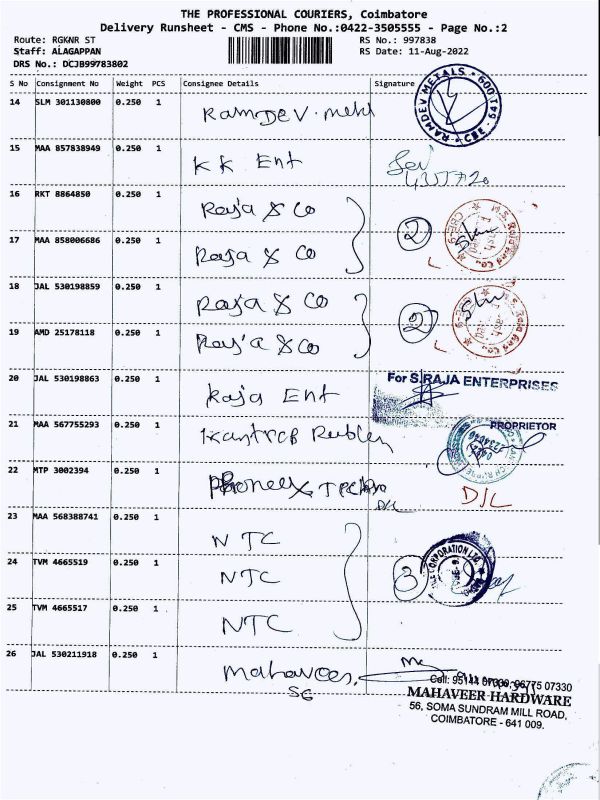 THE PROFESSIONAL COURIERS, Coimbatore
Delivery Runsheet - CMS - Phone No.:0422-3505555 - Page No.:2
Route: RGKNR ST
RS No.: 997838
Staff: ALAGAPPAN
RS Date: 11-Aug-2022
DRS No.: DCJB99783802
S No Consignment No Weight PCS Consignee Details Signature
14 SLM 301130800 0.250 1 RAMDEV. Metal
RAMDEV METALS CBE
15 MAA 857838949 0.250 1 KK Ent
16 RKT 8864850 0.250 1 Raja & Co
2
17 MAA 858006686 0.250 1 Raja & Co
18 JAL 530198859 0.250 1 Raja & Co
2
19 AMD 25178118 0.250 1 Raja & Co
20 JAL 530198863 0.250 1 Raja Ent
For S.RAJA ENTERPRISES
PROPRIETOR
21 MAA 567755293 0.250 1
22 MTP 3002394 0.250 1
D/L
23 MAA 568388741 0.250 1 NTC
24 TVM 4665519 0.250 1 NTC
3
25 TVM 4665517 0.250 1 NTC
26 JAL 530211918 0.250 1
MAHAVEER HARDWARE
56, SOMA SUNDRAM MILL ROAD,
COIMBATORE - 641 009.